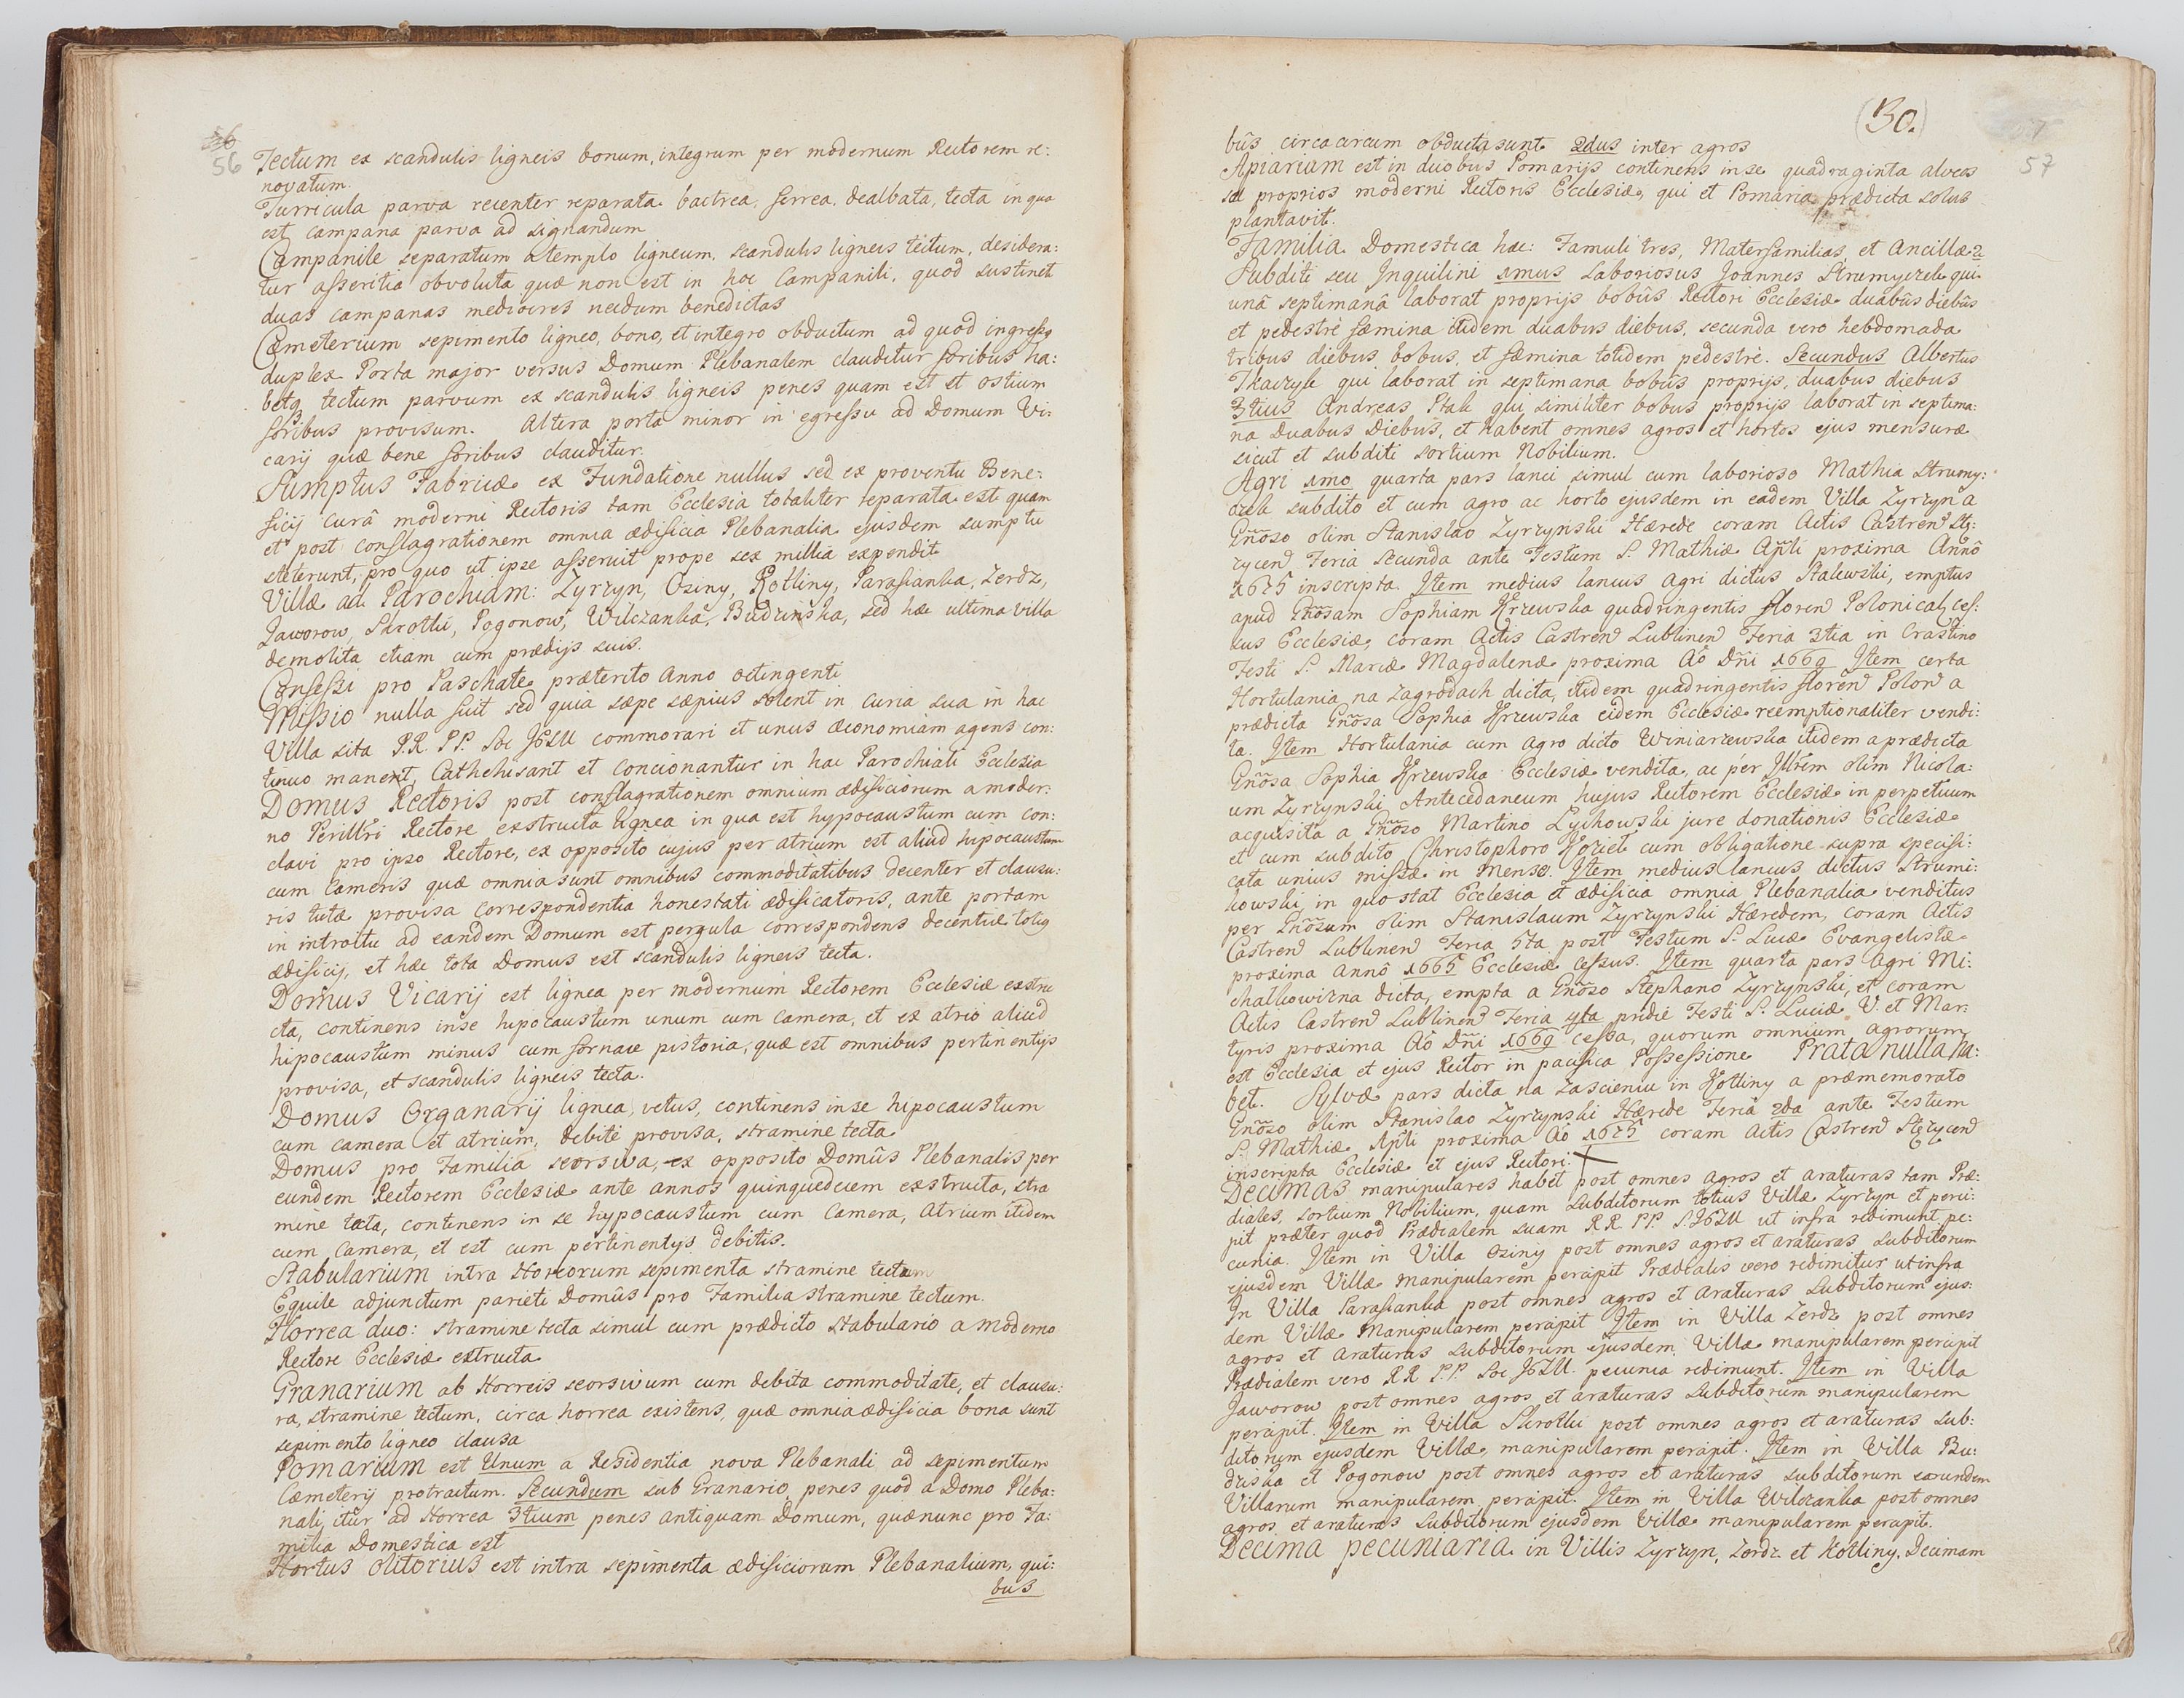 56
56
Tectum ex scandulis ligneis bonum, integrum per modernum Rectorem re:
novatum.
Turricula parva recenter reparata bactrea, ferrea, dealbata, tecta in qua
est campana parva ad signandum
Campanile separatum a templo ligneum, scandulis ligneis tectum, desidera:
tur asseritia obvoluta quæ non est in hoc Campanili, quod sustinet
duas campanas mediocres necdum benedictas
Cæmeterium sepimento ligneo, bono, et integro obductum ad quod ingressq
duplex Porta major versus Domum Plebanalem clauditur foribus ha:
betq tectum parvum ex scandulis ligneis penes quam est et ostium
foribus provisum. Altera porta minor in egressu ad Domum Vi:
carij quæ bene foribus clauditur.
Sumptus Fabricæ ex Fundatione nullus sed ex proventu Bene:
ficij curâ moderni Rectoris tam Ecclesia totaliter reparata est quam
et post conflagrationem omnia ædificia Plebanalia ejusdem sumptu
steterunt, pro quo ut ipse asseruit prope sex millia expendit
Villæ ad Parochiam: Zyrzyn, Osiny, Kotliny, Parafianka, Zerdz,
Jaworow, Skrotki, Pogonow, Wilczanka, Budzinska, sed hæc ultima villa
demolita etiam cum prædijs suis.
Confessi pro Paschate præterito Anno octingenti
Missio nulla fuit sed quia sæpe sæpius solent in curia sua in hac
Villa sita P.R. P.P. Soc JESU commorari et unus œconomiam agens con:
tinuo manent, Cathehisant et Concionantur in hac Parochiali Ecclesia
Domus Rectoris post conflagrationem omnium ædificiorum a moder:
no Perillri Rectore exstructa lignea in qua est hypocaustum cum con:
clavi pro ipso Rectore, ex opposito cujus per atrium est aliud hipocaustum
cum Cameris quæ omnia sunt omnibus commoditatibus decenter et clausu:
ris tutæ provisa correspondentia honestati ædificatoris, ante portam
in introitu ad eandem Domum est pergula correspondens decentiæ totiq
ædificij, et hæc tota Domus est scandulis ligneis tecta.
Domus Vicarij est lignea per modernum Rectorem Ecclesiæ exstru
cta, continens in se hipocaustum unum cum camera, et ex atrio aliud
hipocaustum minus cum fornace pistoria, quæ est omnibus pertinentijs
provisa, et scandulis ligneis tecta.
Domus Organarij lignea, vetus, continens in se hipocaustum
cum camera et atrium, debite provisa, stramine tecta
Domus pro Familia seorsiva, ex opposito Domûs Plebanalis per
eundem Rectorem Ecclesiæ ante annos quinquedecem exstructa, stra
mine tecta, continens in se hypocaustum cum Camera, Atrium itidem
cum Camera, et est cum pertinentijs debitis.
Stabularium intra Horreorum sepimenta stramine tectum
Equile adjunctum parieti Domûs pro Familia stramine tectum.
Horrea duo: stramine tecta simul cum prædicto stabulario a moderno
Rectore Ecclesiæ extructa
Granarium ab Horreis seorsivum cum debita commoditate, et clausu:
ra, stramine tectum, circa horrea existens, quæ omnia ædificia bona sunt
sepimento ligneo clausa
Pomarium est Unum a Residentia nova Plebanali ad sepimentum
Cæmeterij protractum. Secundum sub Granario penes quod a Domo Pleba:
nali itur ad Horrea 3tium penes antiquam Domum, quæ nunc pro Fa:
milia Domestica est
Hortus olitorius est intra sepimenta ædificiorum Plebanalium, qui:
bus
(30.)
57
bûs circacircum obducta sunt 2dus inter agros
Apiarium est in duobus Pomarijs continens in se quadraginta alveos
sed proprios moderni Rectoris Ecclesiæ, qui et Pomaria prædicta solus
plantavit.
Familia Domestica hæc: Famuli tres, Materfamilias, et Ancillæ 2
Subditi seu Inquilini 1mus Laboriosus Joannes Strumyczek qui
unâ septimanâ laborat proprijs bobûs Rectori Ecclesiæ duabûs diebûs
et pedestrè fæmina itidem duabus diebus, secunda vero hebdomada
tribus diebus bobus, et fæmina totidem pedestrè. Secundus Albertus
Tkaczyk qui laborat in septimana bobûs proprijs, duabus diebus
3tius Andreas Ptak qui similiter bobus proprijs laborat in septima:
na Duabus Diebus, et habent omnes agros et hortos ejus mensuræ
sicut et subditi sortium Nobilium.
Agri 1mo quarta pars lanei simul cum laborioso Mathia Strumy:
czek subdito et cum agro ac horto ejusdem in eadem Villa Zyrzyn a
Gñoso olim Stanislao Zyrzynski Hærede coram Actis Castren Stę:
zycen Feria secunda ante Festum S. Mathiæ Apli proxima Annô
1675 inscripta. Item medius laneus agri dictus Stalewski, emptus
apud Gñosam Sophiam Krzewska quadringentis floren Polonical, ces:
sus Ecclesiæ, coram Actis Castren Lublinen Feria 3tia in Crastino
Festi S. Mariæ Magdalenæ proxima Aô Dñi 1669 Item certa
Hortulania na Zagrodach dicta, itidem quadringentis floren Polon a
prædicta Gñosa Sophia Krzewska eidem Ecclesiæ reemptionaliter vendi:
ta. Item Hortulania cum agro dicto Winiarzewska itidem a prædicta
Gñosa Sophia Krzewska Ecclesiæ vendita, ac per Illrem olim Nicola:
um Zyrzynski Antecedaneum hujus Rectorem Ecclesiæ in perpetuum
acquisita a Gñoso Martino Lychowski jure donationis Ecclesiæ
et cum subdito Christophoro Koziel cum obligatione supra specifi:
cata unius missæ in mense. Item medius laneus, dictus Strumi:
kowski, in quo stat Ecclesia et ædificia omnia Plebanalia venditus
per Gñosum olim Stanislaum Zyrzynski Hæredem, coram Actis
Castren Lublinen Feria 5ta post Festum S. Lucæ Evangelistæ
proxima Annô 1665 Ecclesiæ cessus. Item quarta pars agri Mi:
chalkowizna dicta, empta a Gñoso Stephano Zyrzynski, et coram
Actis Castren Lublinen Feria 4ta pridie Festi S. Luciæ V. et Mar:
tyris proxima Aô Dñi 1669 cessa, quorum omnium agrorum
est Ecclesia et ejus Rector in pacifica Possessione Prata nulla ha:
bet. Sylvæ pars dicta na Zascieniu in Kotliny a præmemorato
Gñoso olim Stanislao Zyrzynski Hærede Feriâ 2da ante Festum
S. Mathiæ Apli proxima Aô 1675 coram Actis Castren Stęzycen
inscripta Ecclesiæ et ejus Rectori.
Decimas manipulares habet post omnes agros et araturas tam Præ:
diales, sortium Nobilium, quam Subditorum totius Villæ Zyrzyn et perci:
pit præter quod Prædialem suam R R. P.P. S. JESU ut infra redimunt pe:
cunia. Item in Villa Osiny post omnes agros et araturas subditorum
ejusdem Villæ manipularem percipit Prædialis vero redimitur ut infra
In Villa Parafianka post omnes agros et araturas Subditorum ejus:
dem Villæ Manipularem percipit Item in Villa Zerdz post omnes
agros et araturas subditorum ejusdem Villæ manipularem percipit
Prædialem vero R R P.P. Soc JESU. pecunia redimunt. Item in Villa
Jaworow post omnes agros et araturas Subditorum manipularem
percipit. Item in Villa Skrotki post omnes agros et araturas sub:
ditorum ejusdem Villæ manipularem percipit. Item in Villa Bu:
dziska et Pogonow post omnes agros et araturas subditorum earundem
Villarum manipularem percipit. Item in Villa Wilczanka post omnes
agros et araturas Subditorum ejusdem Villæ manipularem percipit.
Decima pecuniaria in Villis Zyrzyn, Zerdz et Kotliny. Decimam